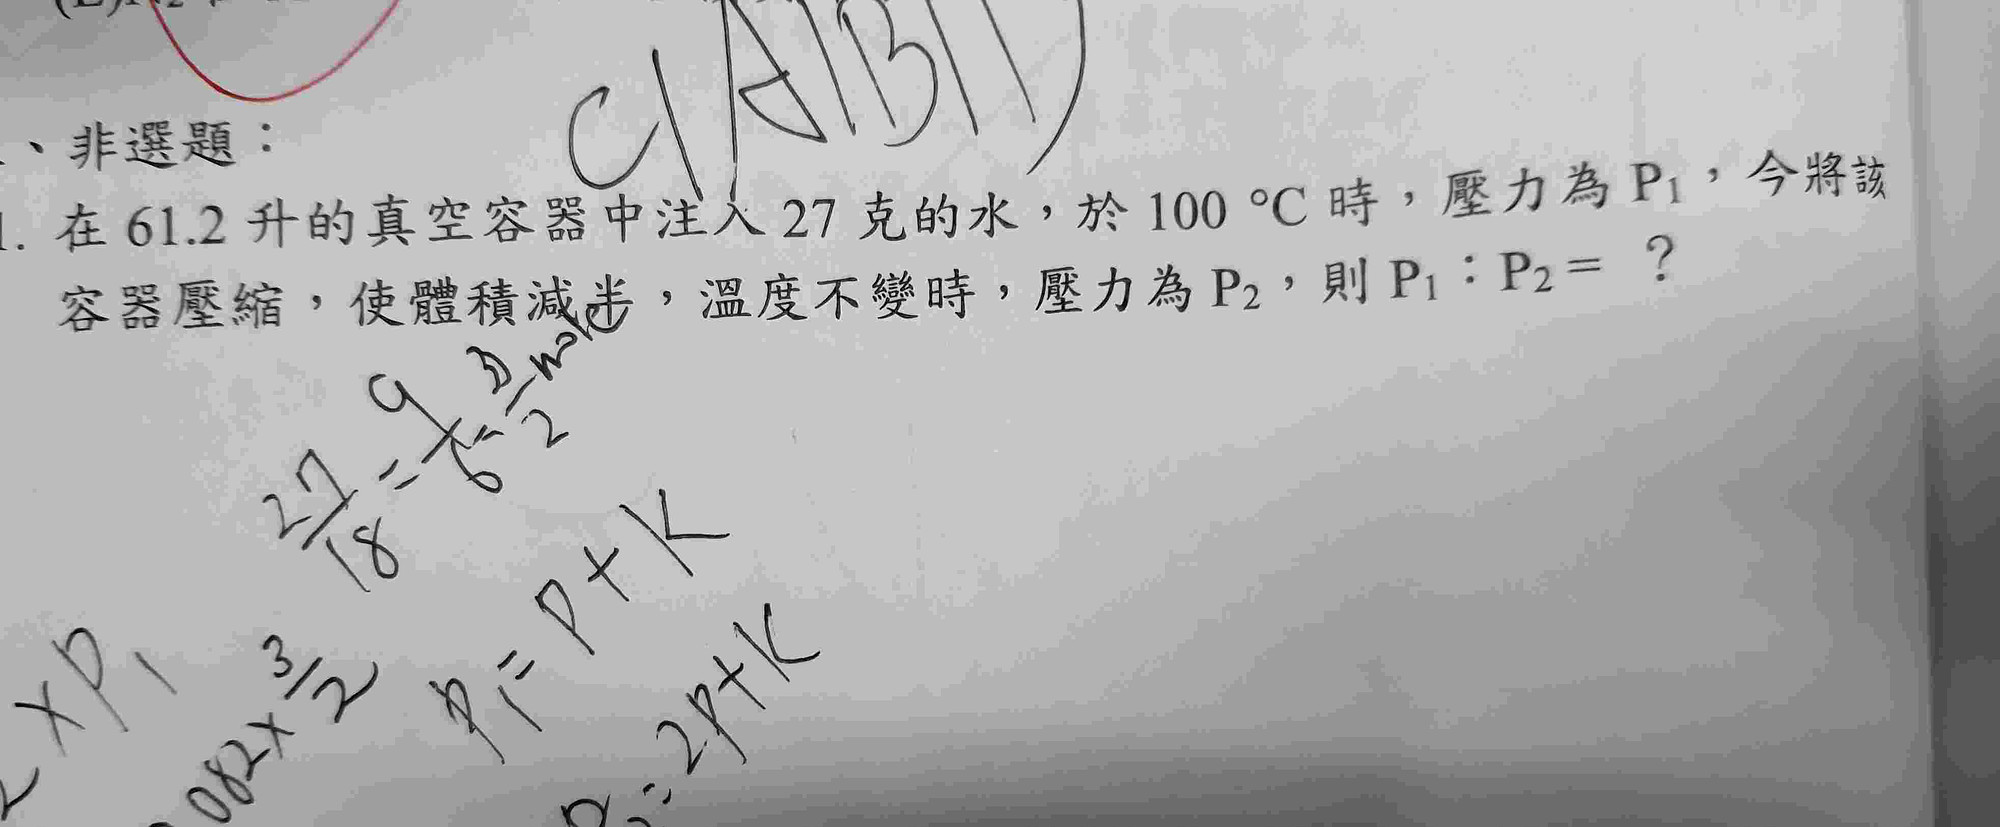 C(A)(B)(D)
、非選題：
1. 在 61.2 升的真空容器中注入 27 克的水，於 100 °C 時，壓力為 P₁，今將該
容器壓縮，使體積減半，溫度不變時，壓力為 P₂，則 P₁：P₂＝ ？
27/18 = 9/6 = 3/2 mole
P₁ = P + K
2P + K
× P₁
082 × 3/2